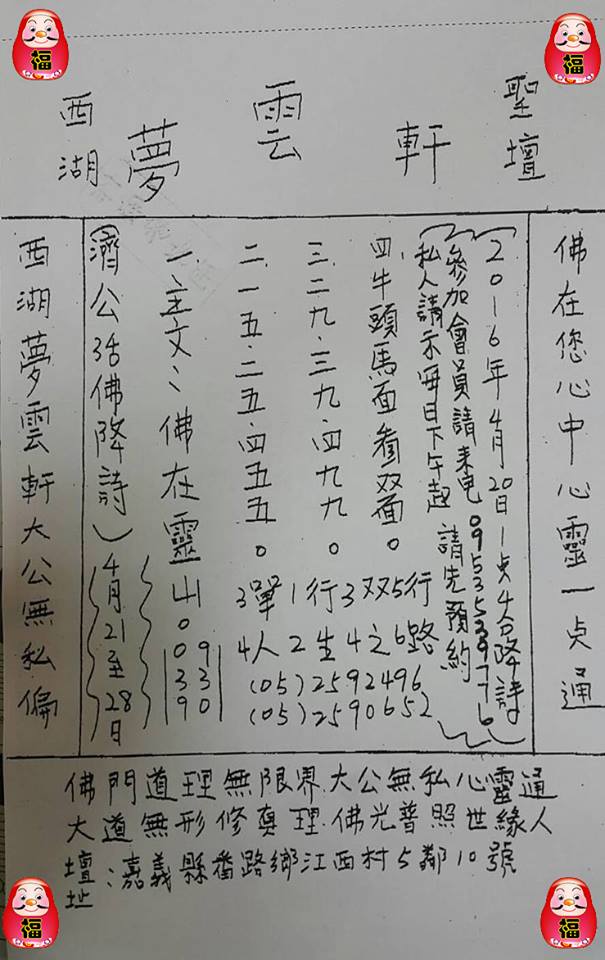 聖壇
軒
雲
夢
西湖
佛在您心中心靈一点通
(2016年4月20日1点4分降詩)
參加會員請来电0953539776
私人請示每日下午起 請先預約
四.牛頭馬面看双面。
三.二九.三九.四九九。
二.一五.二五.四五五。
一、主文:佛在靈山
009
33
90
3單1行3双5行
4人2生4之6路
(05)2592496
(05)2590652
(濟公活佛降詩)
4月21至28日
西湖夢雲軒大公無私偏
佛門道理無限界.大公無私心靈通
大道無形修真理.佛光普照世緣人
壇址:嘉義縣番路鄉江西村5鄰10號
福
福
福
福